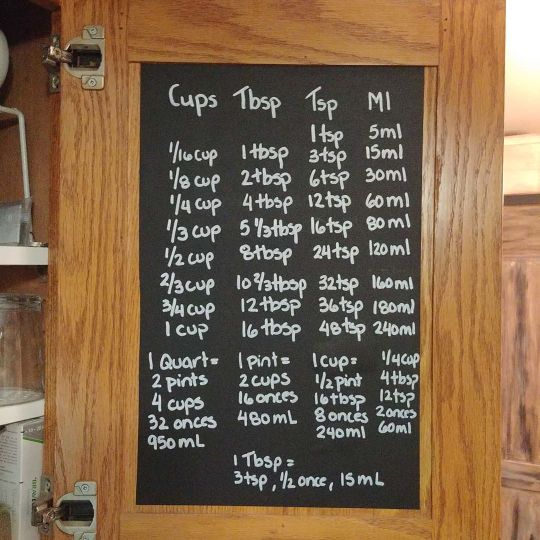 Cups Tbsp Tsp Ml
1 tsp 5ml
1/16 cup 1 tbsp 3 tsp 15ml
1/8 cup 2 tbsp 6 tsp 30ml
1/4 cup 4 tbsp 12 tsp 60ml
1/3 cup 5 1/3 tbsp 16 tsp 80ml
1/2 cup 8 tbsp 24 tsp 120ml
2/3 cup 10 2/3 tbsp 32 tsp 160ml
3/4 cup 12 tbsp 36 tsp 180ml
1 cup 16 tbsp 48 tsp 240ml
1 Quart= 1 pint= 1 cup= 1/4 cup
2 pints 2 cups 1/2 pint 4 tbsp
4 cups 16 onces 16 tbsp 12 tsp
32 onces 480mL 8 onces 2 onces
950mL 240ml 60ml
1 Tbsp =
3 tsp, 1/2 once, 15mL